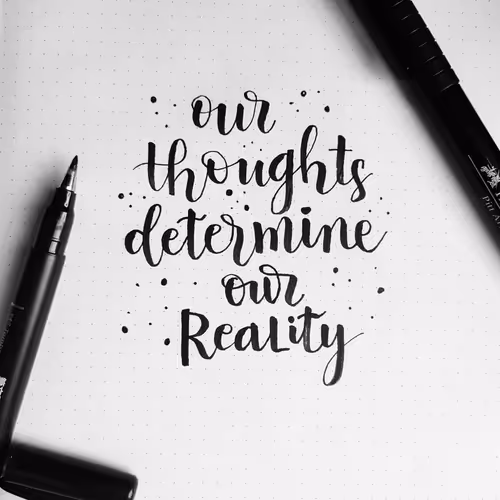 our
thoughts
determine
our
Reality